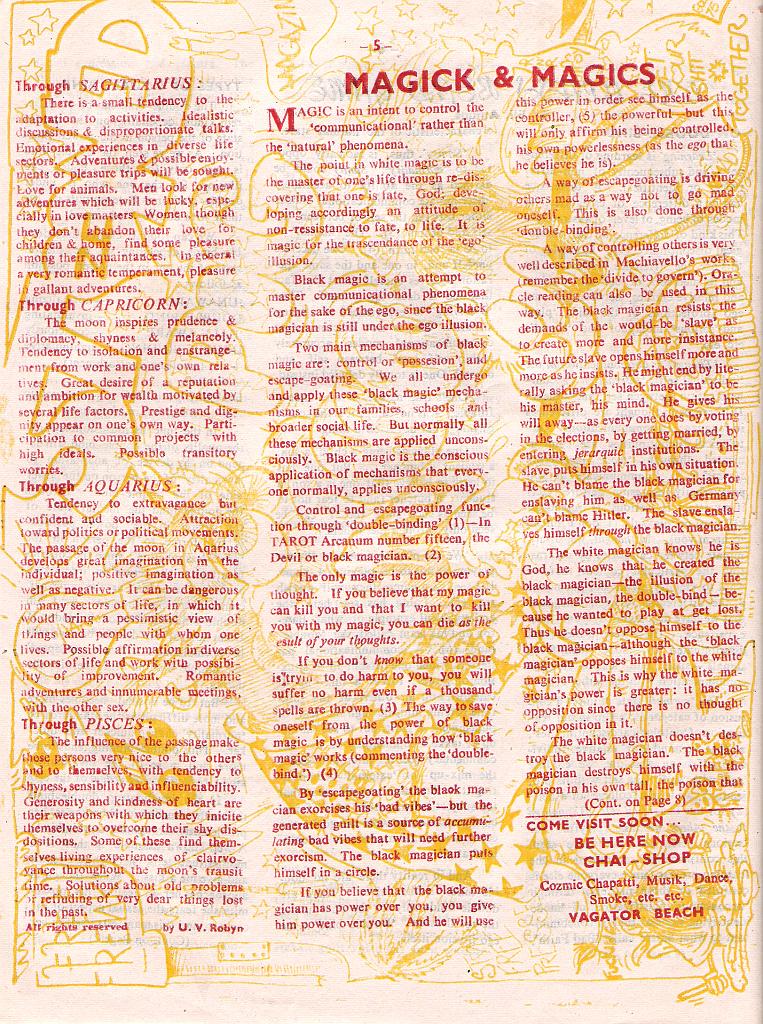 - 5 -
Through SAGITTARIUS :
There is a small tendency to the
adaptation to activities. Idealistic
discussions & disproportionate talks.
Emotional experiences in diverse life
sectors. Adventures & possible enjoy-
ments or pleasure trips will be sought.
Love for animals. Men look for new
adventures which will be lucky, espe-
cially in love matters. Women, though
they don't abandon their love for
children & home, find some pleasure
among their aquaintances. In general
a very romantic temperament, pleasure
in gallant adventures.
Through CAPRICORN :
The moon inspires prudence &
diplomacy, shyness & melancoly.
Tendency to isolation and enstrange-
ment from work and one's own rela-
tives. Great desire of a reputation
and ambition for wealth motivated by
several life factors. Prestige and dig-
nity appear on one's own way. Parti-
cipation to common projects with
high ideals. Possible transitory
worries.
Through AQUARIUS :
Tendency to extravagance but
confident and sociable. Attraction
toward politics or political movements.
The passage of the moon in Aqarius
develops great imagination in the
individual; positive imagination as
well as negative. It can be dangerous
in many sectors of life, in which it
would bring a pessimistic view of
things and people with whom one
lives. Possible affirmation in diverse
sectors of life and work with possibi-
lity of improvement. Romantic
adventures and innumerable meetings,
with the other sex.
Through PISCES :
The influence of the passage make
those persons very nice to the others
and to themselves, with tendency to
shyness, sensibility and influenciability.
Generosity and kindness of heart are
their weapons with which they inicite
themselves to overcome their shy dis-
dositions. Some of these find them-
selves living experiences of clairvo-
yance throughout the moon's transit
time. Solutions about old problems
or refinding of very dear things lost
in the past.
All rights reserved by U. V. Robyn
MAGICK & MAGICS
MAGIC is an intent to control the
'communicational' rather than
the 'natural' phenomena.
The point in white magic is to be
the master of one's life through re-dis-
covering that one is fate, God; deve-
loping accordingly an attitude of
non-ressistance to fate, to life. It is
magic for the trascendance of the 'ego'
illusion.
Black magic is an attempt to
master communicational phenomena
for the sake of the ego, since the black
magician is still under the ego illusion.
Two main mechanisms of black
magic are : control or 'possesion', and
escape-goating. We all undergo
and apply these 'black magic' mecha-
nisms in our families, schools and
broader social life. But normally all
these mechanisms are applied uncons-
ciously. Black magic is the conscious
application of mechanisms that every-
one normally, applies unconsciously.
Control and escapegoating func-
tion through 'double-binding' (1)—In
TAROT Arcanum number fifteen, the
Devil or black magician. (2)
The only magic is the power of
thought. If you believe that my magic
can kill you and that I want to kill
you with my magic, you can die as the
result of your thoughts.
If you don't know that someone
is trym to do harm to you, you will
suffer no harm even if a thousand
spells are thrown. (3) The way to save
oneself from the power of black
magic is by understanding how 'black
magic' works (commenting the 'double-
bind.') (4)
By 'escapegoating' the blaok ma-
cian exorcises his 'bad vibes'—but the
generated guilt is a source of accumu-
lating bad vibes that will need further
exorcism. The black magician puts
himself in a circle.
If you believe that the black ma-
gician has power over you, you give
him power over you. And he will use
this power in order see himself as the
controller, (5) the powerful—but this
will only affirm his being controlled,
his own powerlessness (as the ego that
he believes he is).
A way of escapegoating is driving
others mad as a way not to go mad
oneself. This is also done through
'double-binding'.
A way of controlling others is very
well described in Machiavello's works
(remember the 'divide to govern'). Ora-
cle reading can also be used in this
way. The black magician resists the
demands of the would-be 'slave' as
to create more and more insistance.
The future slave opens himself more and
more as he insists. He might end by lite-
rally asking the 'black magician' to be
his master, his mind. He gives his
will away—as every one does by voting
in the elections, by getting married, by
entering jerarquic institutions. The
slave puts himself in his own situation.
He can't blame the black magician for
enslaving him as well as Germany
can't blame Hitler. The slave ensla-
ves himself through the black magician.
The white magician knows he is
God, he knows that he created the
black magician—the illusion of the
black magician, the double-bind—be-
cause he wanted to play at get lost.
Thus he doesn't oppose himself to the
black magician—although the 'black
magician' opposes himself to the white
magician. This is why the white ma-
gician's power is greater : it has no
opposition since there is no thought
of opposition in it.
The white magician doesn't des-
troy the black magician. The black
magician destroys himself with the
poison in his own tail, the poison that
(Cont. on Page 8)
COME VISIT SOON...
BE HERE NOW
CHAI-SHOP
Cozmic Chapatti, Musik, Dance,
Smoke, etc. etc.
VAGATOR BEACH